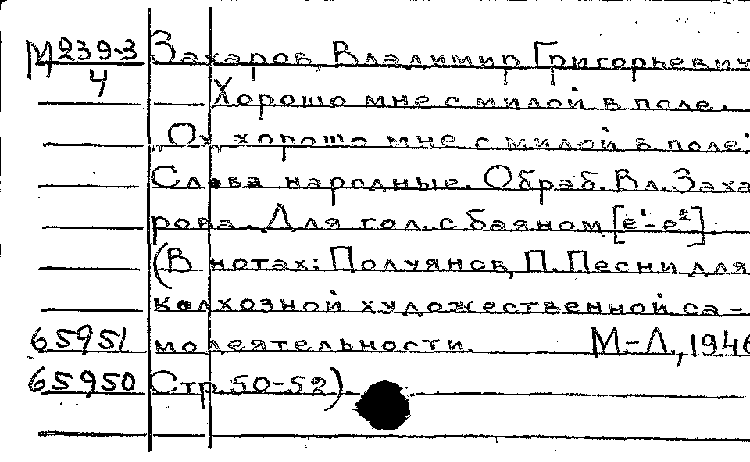 М 239-3 Захаров, Владимир Григорьевич
4 Хорошо мне с милой в поле.
"Ох, хорошо мне с милой в поле"
Слова народные. Обраб. Вл. Заха
рова. Для гол. с баяном [e¹-e²].
(В нотах: Полуянов, П. Песни для
колхозной художественной са-
65951 модеятельности. М-Л., 1946
65950 Стр. 50-52).